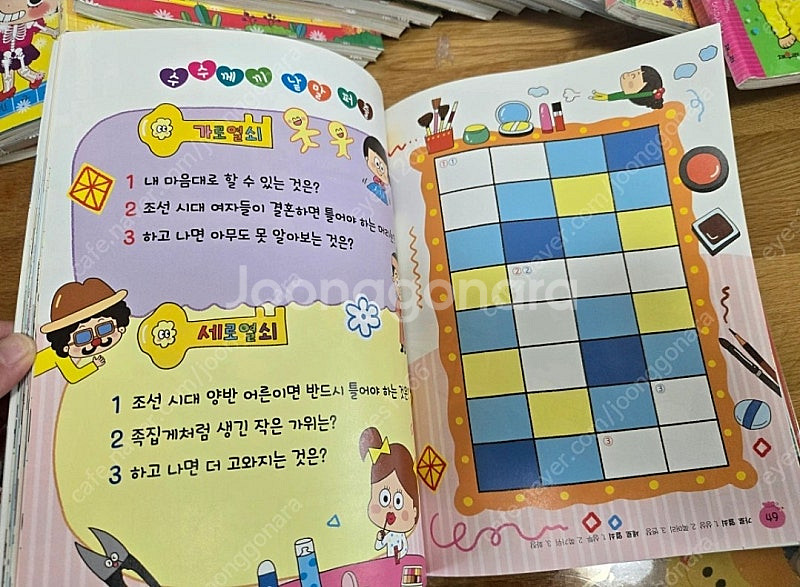 수수께끼 낱말 퍼즐
가로열쇠
1 내 마음대로 할 수 있는 것은?
2 조선 시대 여자들이 결혼하면 틀어야 하는 머리는
3 하고 나면 아무도 못 알아보는 것은?
세로열쇠
1 조선 시대 양반 어른이면 반드시 틀어야 하는 것은
2 족집게처럼 생긴 작은 가위는?
3 하고 나면 더 고와지는 것은?
① ①
② ②
③
③
가로 열쇠 1. 상상 2. 쪽머리 3. 변장 세로 열쇠 1. 상투 2. 쪽가위 3. 화장
49
Joonggonara